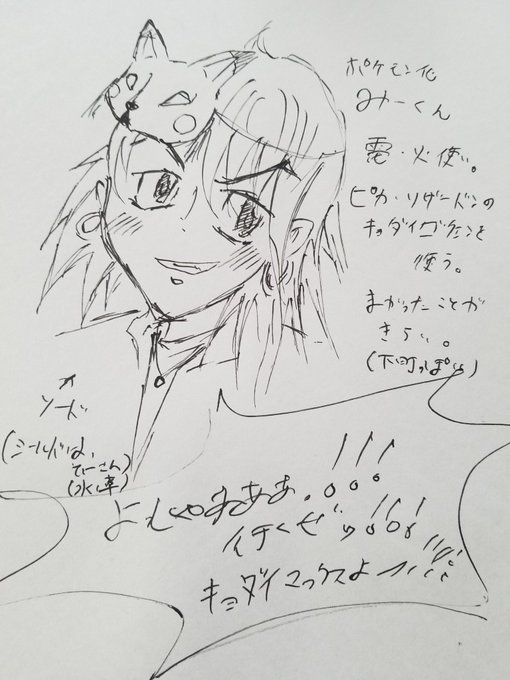 ポケモン化
みーくん
電・火使い。
ピカ・リザードンの
キョダイゴクエンを
使う。
まがったことが
きらい。
(下町っぽい)
ソード
(シールドは、
てぃーさん)
(水・草)
よしゃああぁ。!!!
イチくぜッ!!!
キョダイマックスよーッ!!!